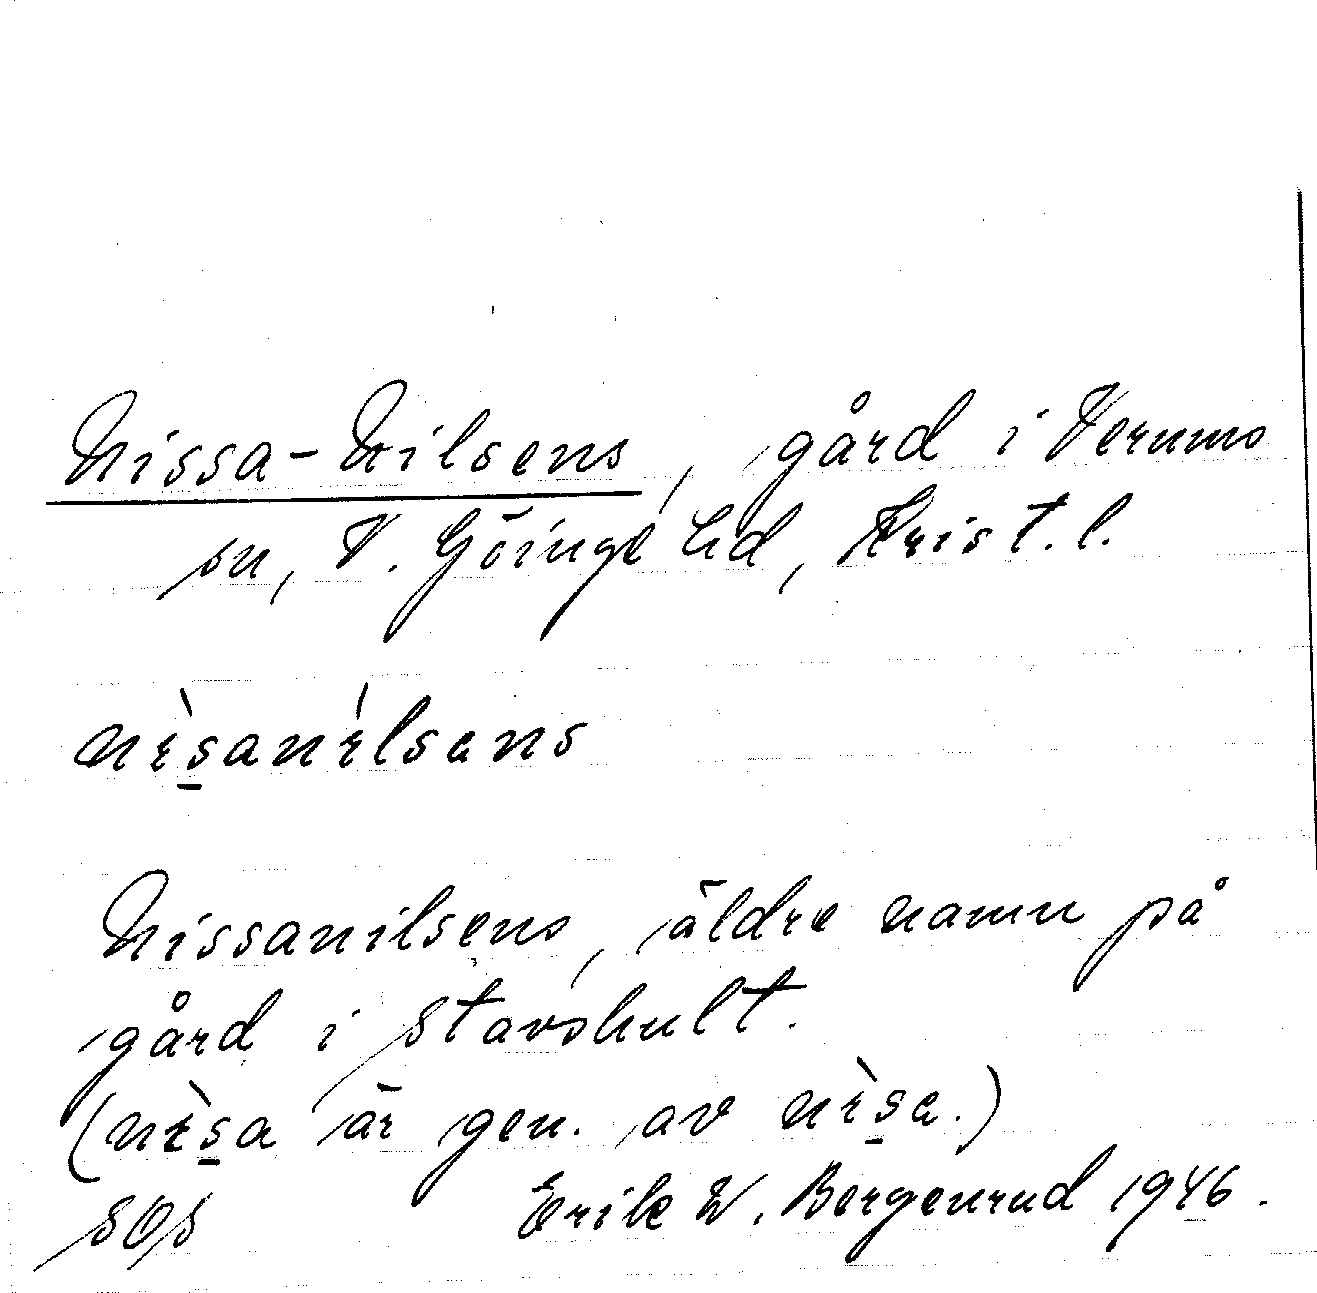 Nissa-Nilsens, gård i Verums
sn, V. Göinge hd, Krist. l.
nìsanílsəns
Nissanilsens, äldre namn på
gård i Stavshult.
(nìsa är gen. av nìsə.)
SOS Erik W. Bergenrud 1946.